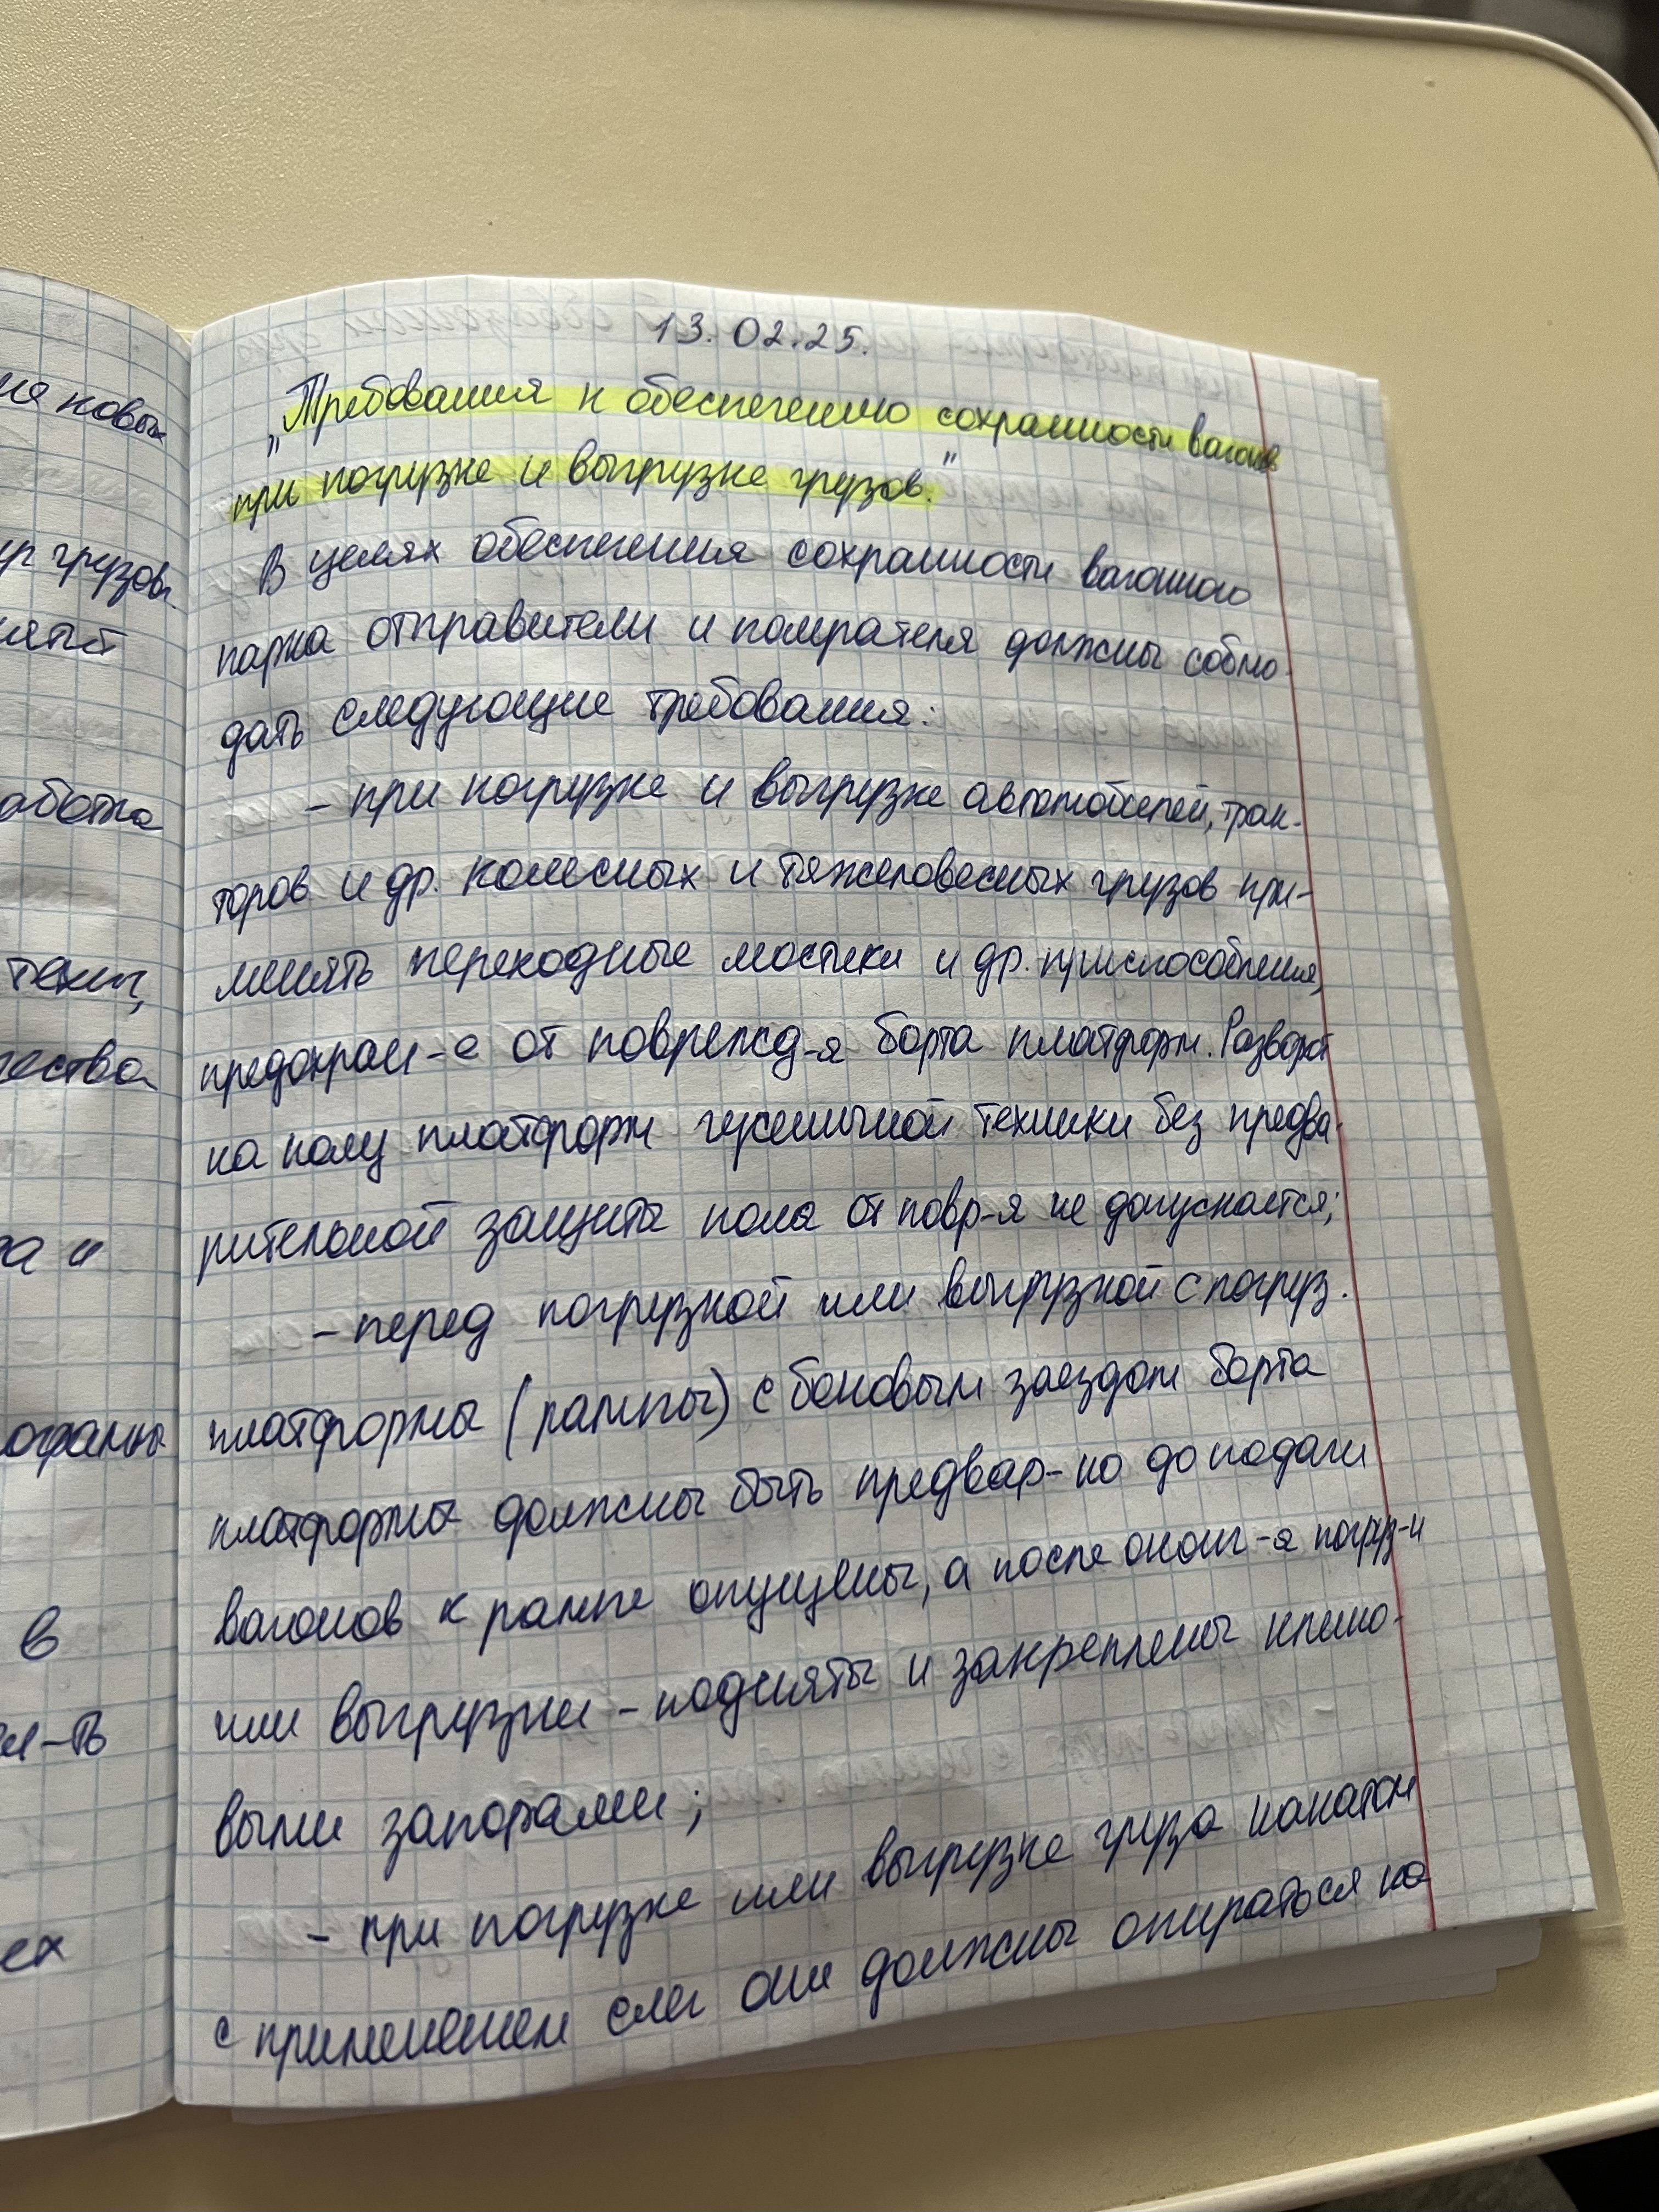 ия новых
грузов.
аботка
техн,
чества
а и
в
ех
13.02.25.
„Требования к обеспечению сохранности вагонов
при погрузке и выгрузке грузов."
В целях обеспечения сохранности вагонного
парка отправители и полкрателя должны соблю-
дать следующие требования:
- при погрузке и выгрузке автомобилей, трак-
торов и др. колесных и тяжеловесных грузов при-
менять переходные мостики и др. приспособления,
предохран-е от поврежд-я борта платформ. Разворот
на полу платформ гусеничной техники без предва-
рительной защиты пола от повр-я не допускается;
- перед погрузкой или выгрузкой с погруз.
платформы (рампы) с боковым заездом борта
платформы должны быть предвар-но до подачи
вагонов к рампе опущены, а после оконч-я погруз-и
или выгрузки - подняты и закреплены клино-
выми запорами;
- при погрузке или выгрузке груза накатом
с применением слег они должны опираться на